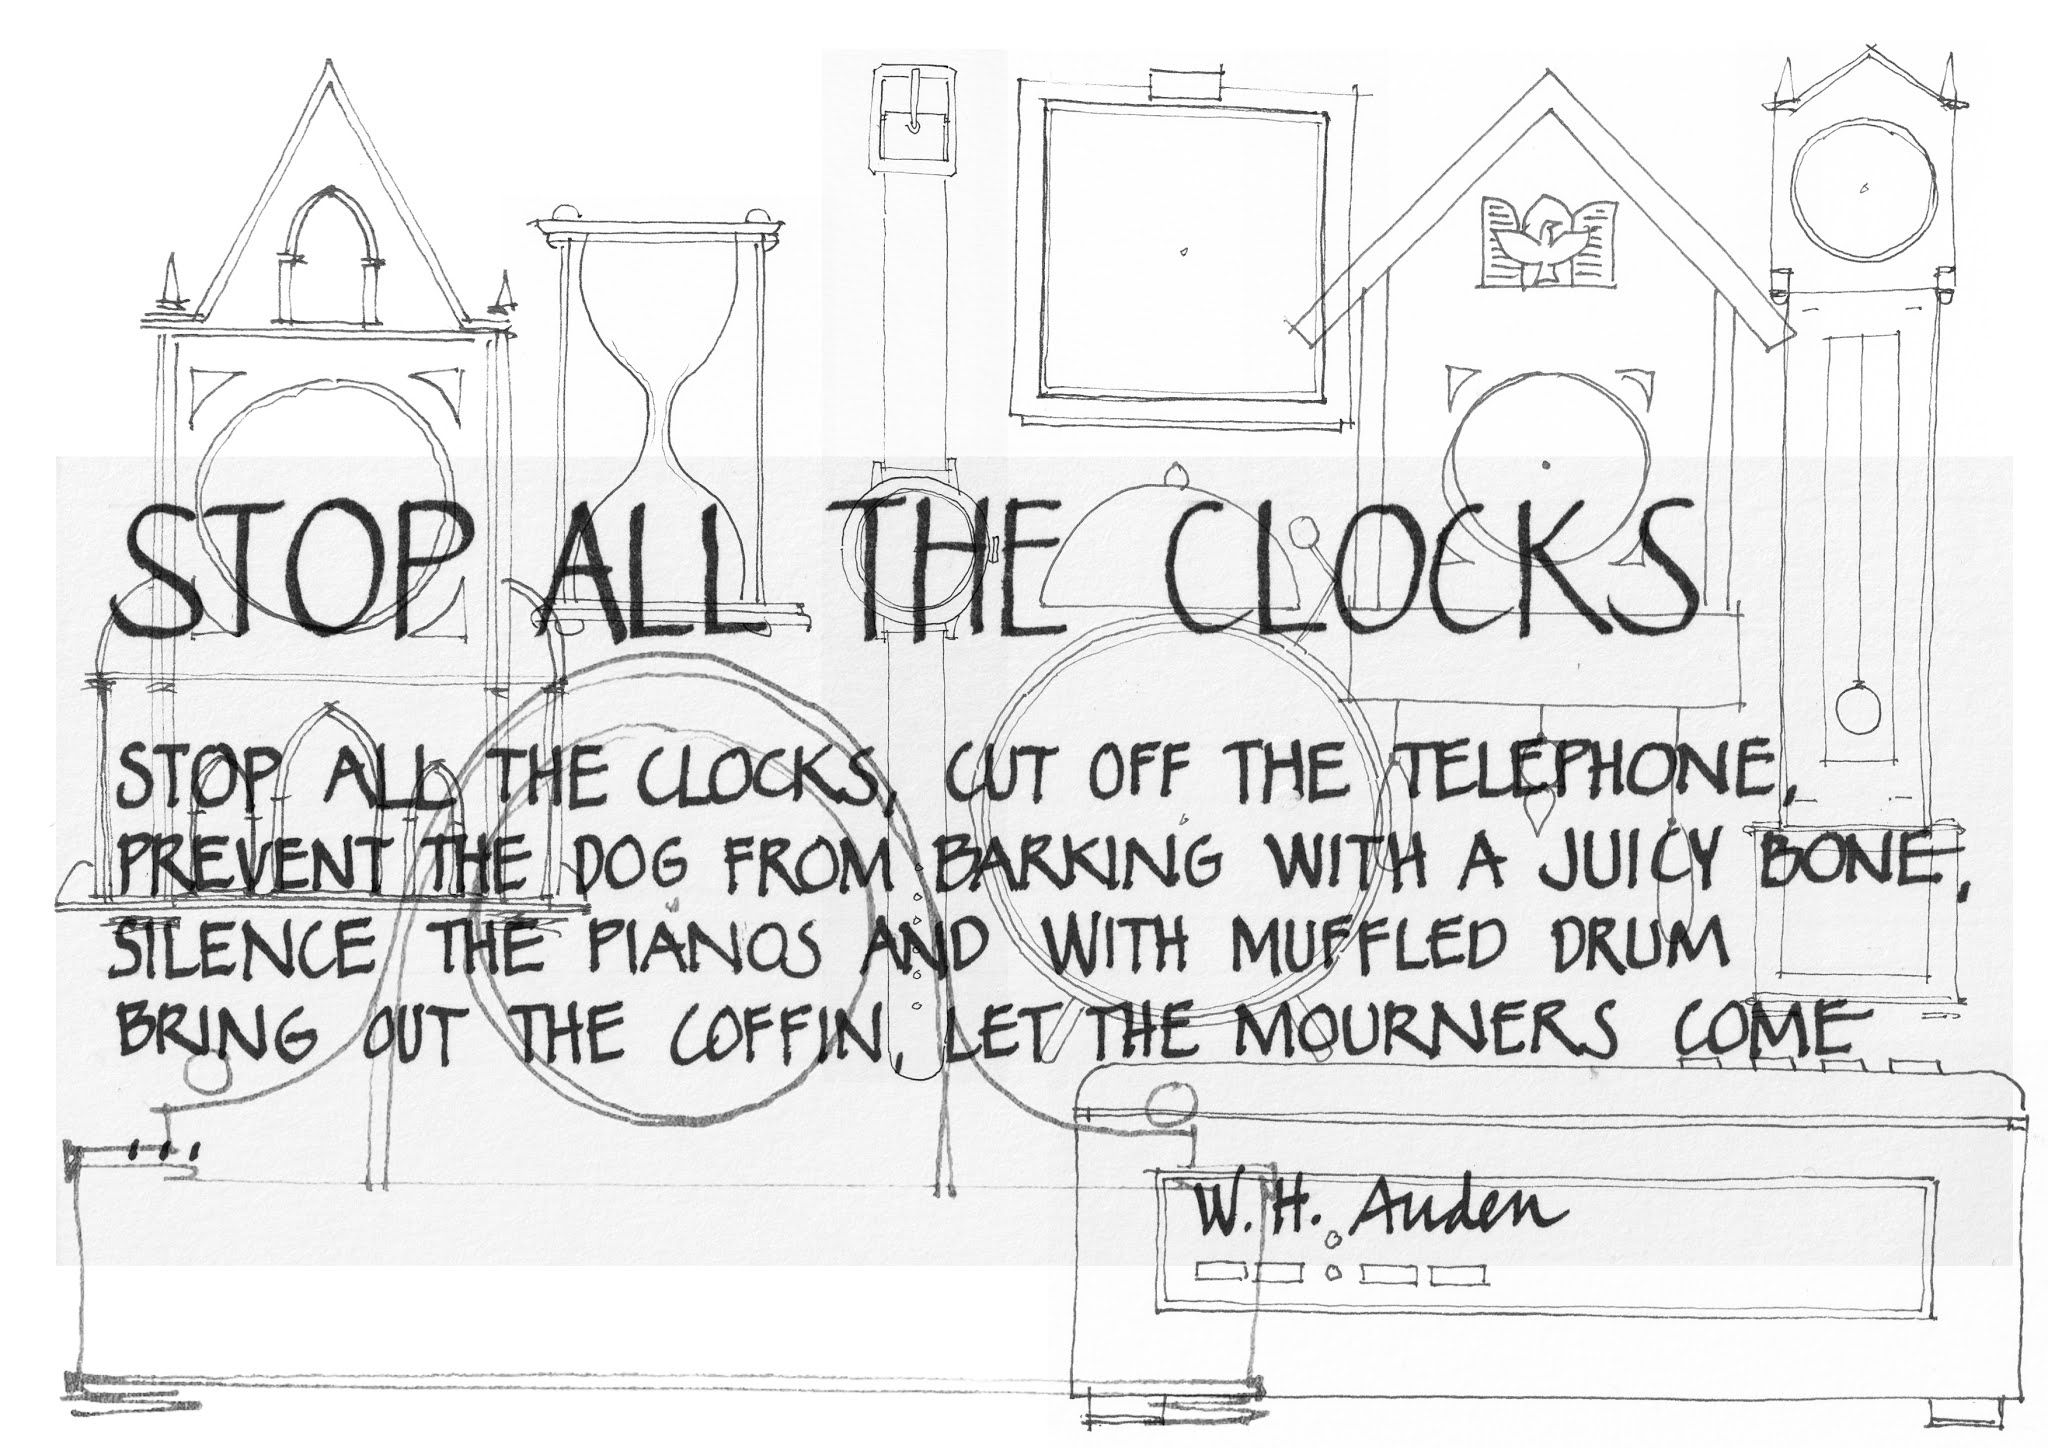 STOP ALL THE CLOCKS
STOP ALL THE CLOCKS, CUT OFF THE TELEPHONE,
PREVENT THE DOG FROM BARKING WITH A JUICY BONE,
SILENCE THE PIANOS AND WITH MUFFLED DRUM
BRING OUT THE COFFIN, LET THE MOURNERS COME
...
W. H. Auden